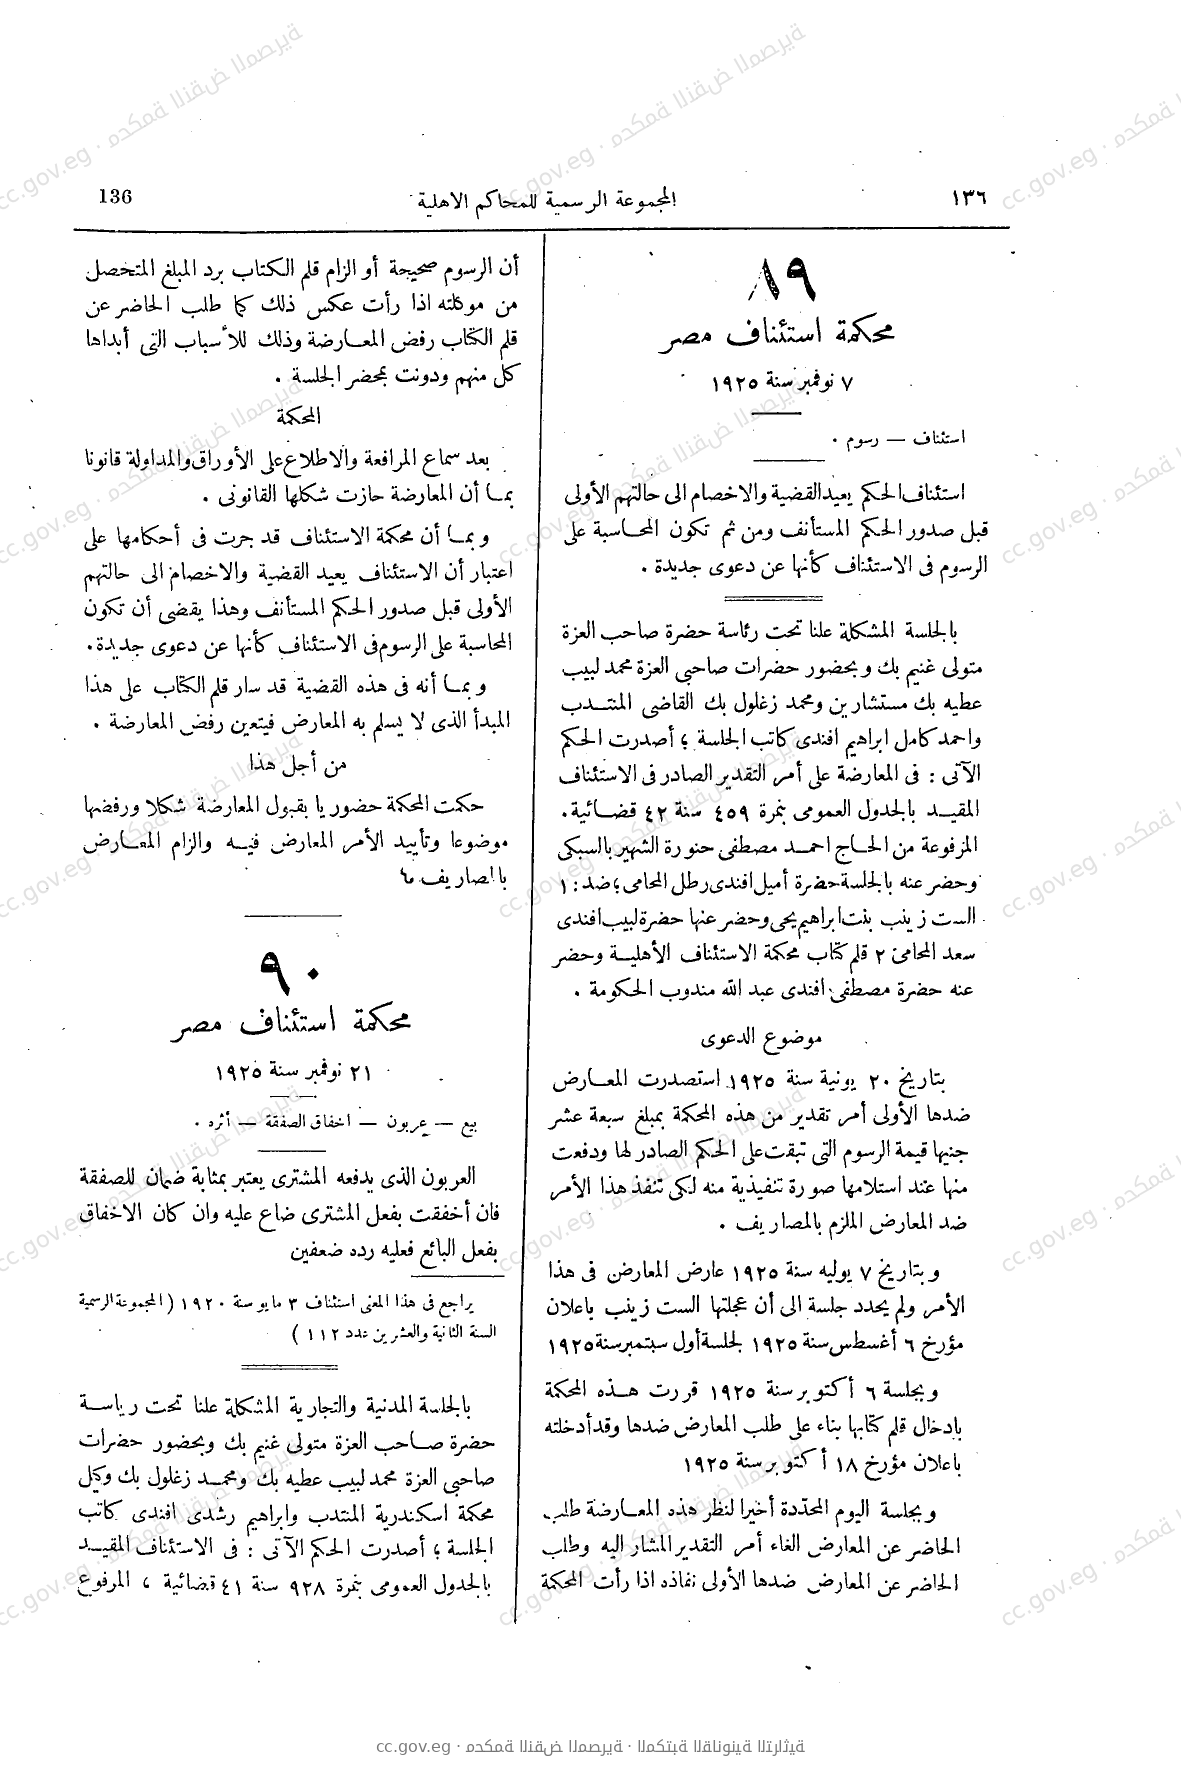 ١٣٦
المجموعة الرسمية للمحاكم الاهلية
136
٨٩
محكمة استئناف مصر
٧ نوفمبر سنة ١٩٢٥
استئناف — رسوم .
استئناف الحكم يعيد القضية والاخصام الى حالتهم الأولى
قبل صدور الحكم المستأنف ومن ثم تكون المحاسبة على
الرسوم فى الاستئناف كأنها عن دعوى جديدة .
بالجلسة المشكلة علنا تحت رئاسة حضرة صاحب العزة
متولى غنيم بك وبحضور حضرات صاحبى العزة محمد لبيب
عطيه بك مستشارين ومحمد زغلول بك القاضى المنتدب
واحمد كامل ابراهيم افندى كاتب الجلسة ؛ أصدرت الحكم
الآتى : فى المعارضة على أمر التقدير الصادر فى الاستئناف
المقيد بالجدول العمومى بنمرة ٤٥٩ سنة ٤٢ قضائية.
المرفوعة من الحاج احمد مصطفى حنورة الشهير بالسبكى
وحضر عنه بالجلسة حضرة أميل افندى رطل المحامى ؛ ضد : ١
الست زينب بنت ابراهيم يحيى وحضر عنها حضرة لبيب افندى
سعد المحامى ٢ قلم كتاب محكمة الاستئناف الأهلية وحضر
عنه حضرة مصطفى افندى عبد الله مندوب الحكومة .
موضوع الدعوى
بتاريخ ٢٠ يونية سنة ١٩٢٥ استصدرت المعارض
ضدها الأولى أمر تقدير من هذه المحكمة بمبلغ سبعة عشر
جنيها قيمة الرسوم التى تبقت على الحكم الصادر لها ودفعت
منها عند استلامها صورة تنفيذية منه لكى تنفذ هذا الأمر
ضد المعارض الملزم بالمصاريف .
وبتاريخ ٧ يوليه سنة ١٩٢٥ عارض المعارض فى هذا
الأمر ولم يحدد جلسة الى أن عجلتها الست زينب باعلان
مؤرخ ٦ أغسطس سنة ١٩٢٥ لجلسة أول سبتمبر سنة ١٩٢٥
وبجلسة ٦ أكتوبر سنة ١٩٢٥ قررت هذه المحكمة
بإدخال قلم كتابها بناء على طلب المعارض ضدها وقد أدخلته
باعلان مؤرخ ١٨ أكتوبر سنة ١٩٢٥
وبجلسة اليوم المحدّدة أخيرا لنظر هذه المعارضة طلب
الحاضر عن المعارض الغاء أمر التقدير المشار اليه وطلب
الحاضر عن المعارض ضدها الأولى نفاذه اذا رأت المحكمة
أن الرسوم صحيحة أو الزام قلم الكتاب برد المبلغ المتحصل
من موكلته اذا رأت عكس ذلك كما طلب الحاضر عن
قلم الكتاب رفض المعارضة وذلك للأسباب التى أبداها
كل منهم ودونت بمحضر الجلسة .
المحكمة
بعد سماع المرافعة والاطلاع على الأوراق والمداولة قانونا
بما أن المعارضة حازت شكلها القانونى .
وبما أن محكمة الاستئناف قد جرت فى أحكامها على
اعتبار أن الاستئناف يعيد القضية والاخصام الى حالتهم
الأولى قبل صدور الحكم المستأنف وهذا يقضى أن تكون
المحاسبة على الرسوم فى الاستئناف كأنها عن دعوى جديدة.
وبما أنه فى هذه القضية قد سار قلم الكتاب على هذا
المبدأ الذى لا يسلم به المعارض فيتعين رفض المعارضة .
من أجل هذا
حكمت المحكمة حضوريا بقبول المعارضة شكلا ورفضها
موضوعا وتأييد الأمر المعارض فيه والزام المعارض
بالمصاريف
٩٠
محكمة استئناف مصر
٢١ نوفمبر سنة ١٩٢٥
بيع — عربون — اخفاق الصفقة — أثره .
العربون الذى يدفعه المشترى يعتبر بمثابة ضمان للصفقة
فان أخفقت بفعل المشترى ضاع عليه وان كان الاخفاق
بفعل البائع فعليه رده ضعفين
يراجع فى هذا المعنى استئناف ٣ مايو سنة ١٩٢٠ (المجموعة الرسمية
السنة الثانية والعشرين عدد ١١٢ )
بالجلسة المدنية والتجارية المشكلة علنا تحت رياسة
حضرة صاحب العزة متولى غنيم بك وبحضور حضرات
صاحبى العزة محمد لبيب عطيه بك ومحمد زغلول بك وكيل
محكمة اسكندرية المنتدب وابراهيم رشدى افندى كاتب
الجلسة ؛ أصدرت الحكم الآتى : فى الاستئناف المقيد
بالجدول العمومى بنمرة ٩٢٨ سنة ٤١ قضائية ، المرفوع
cc.gov.eg · محكمة النقض المصرية · المكتبة القانونية التراثية